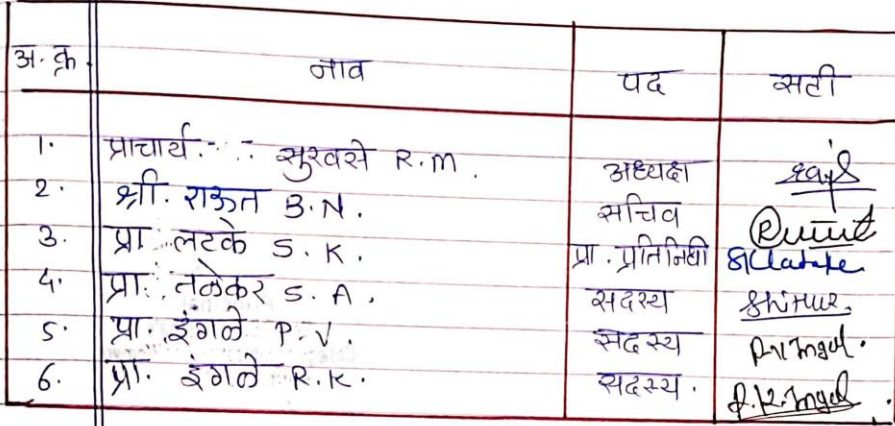 अ. क्र. नाव पद सही
1. प्राचार्य. सुरवसे R.M. अध्यक्ष
2. श्री. राऊत B.N. सचिव
3. प्रा. लटके S.K. प्रा. प्रतिनिधी SKLatake
4. प्रा. तळेकर S.A. सदस्य
5. प्रा. इंगळे P.V. सदस्य P.V.Ingal.
6. प्रा. इंगळे R.K. सदस्य. R.K.Ingal